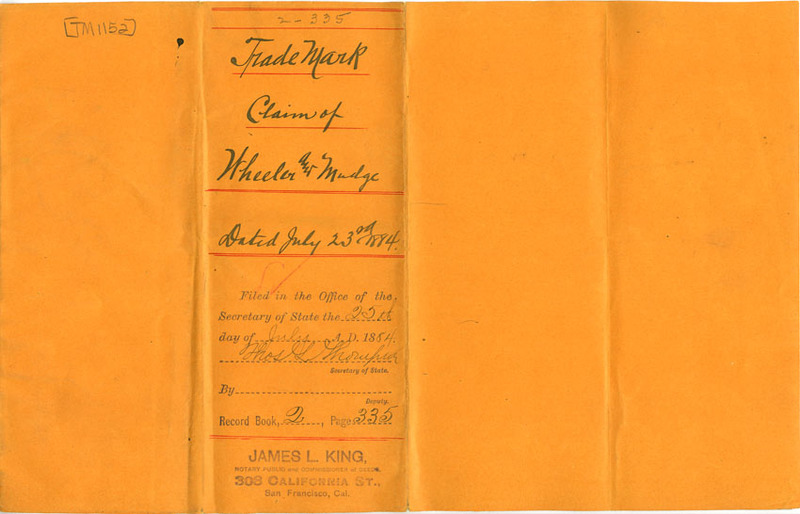 [TM1152]
2-335
Trade Mark
Claim of
Wheeler & Mudge
Dated July 23rd 1884.
Filed in the Office of the
Secretary of State the 25th
day of July A. D. 1884.
Thos L Thompson
Secretary of State.
By
Deputy.
Record Book, 2, Page 335
JAMES L. KING,
NOTARY PUBLIC and COMMISSIONER of DEEDS,
308 CALIFORNIA ST.,
San Francisco, Cal.